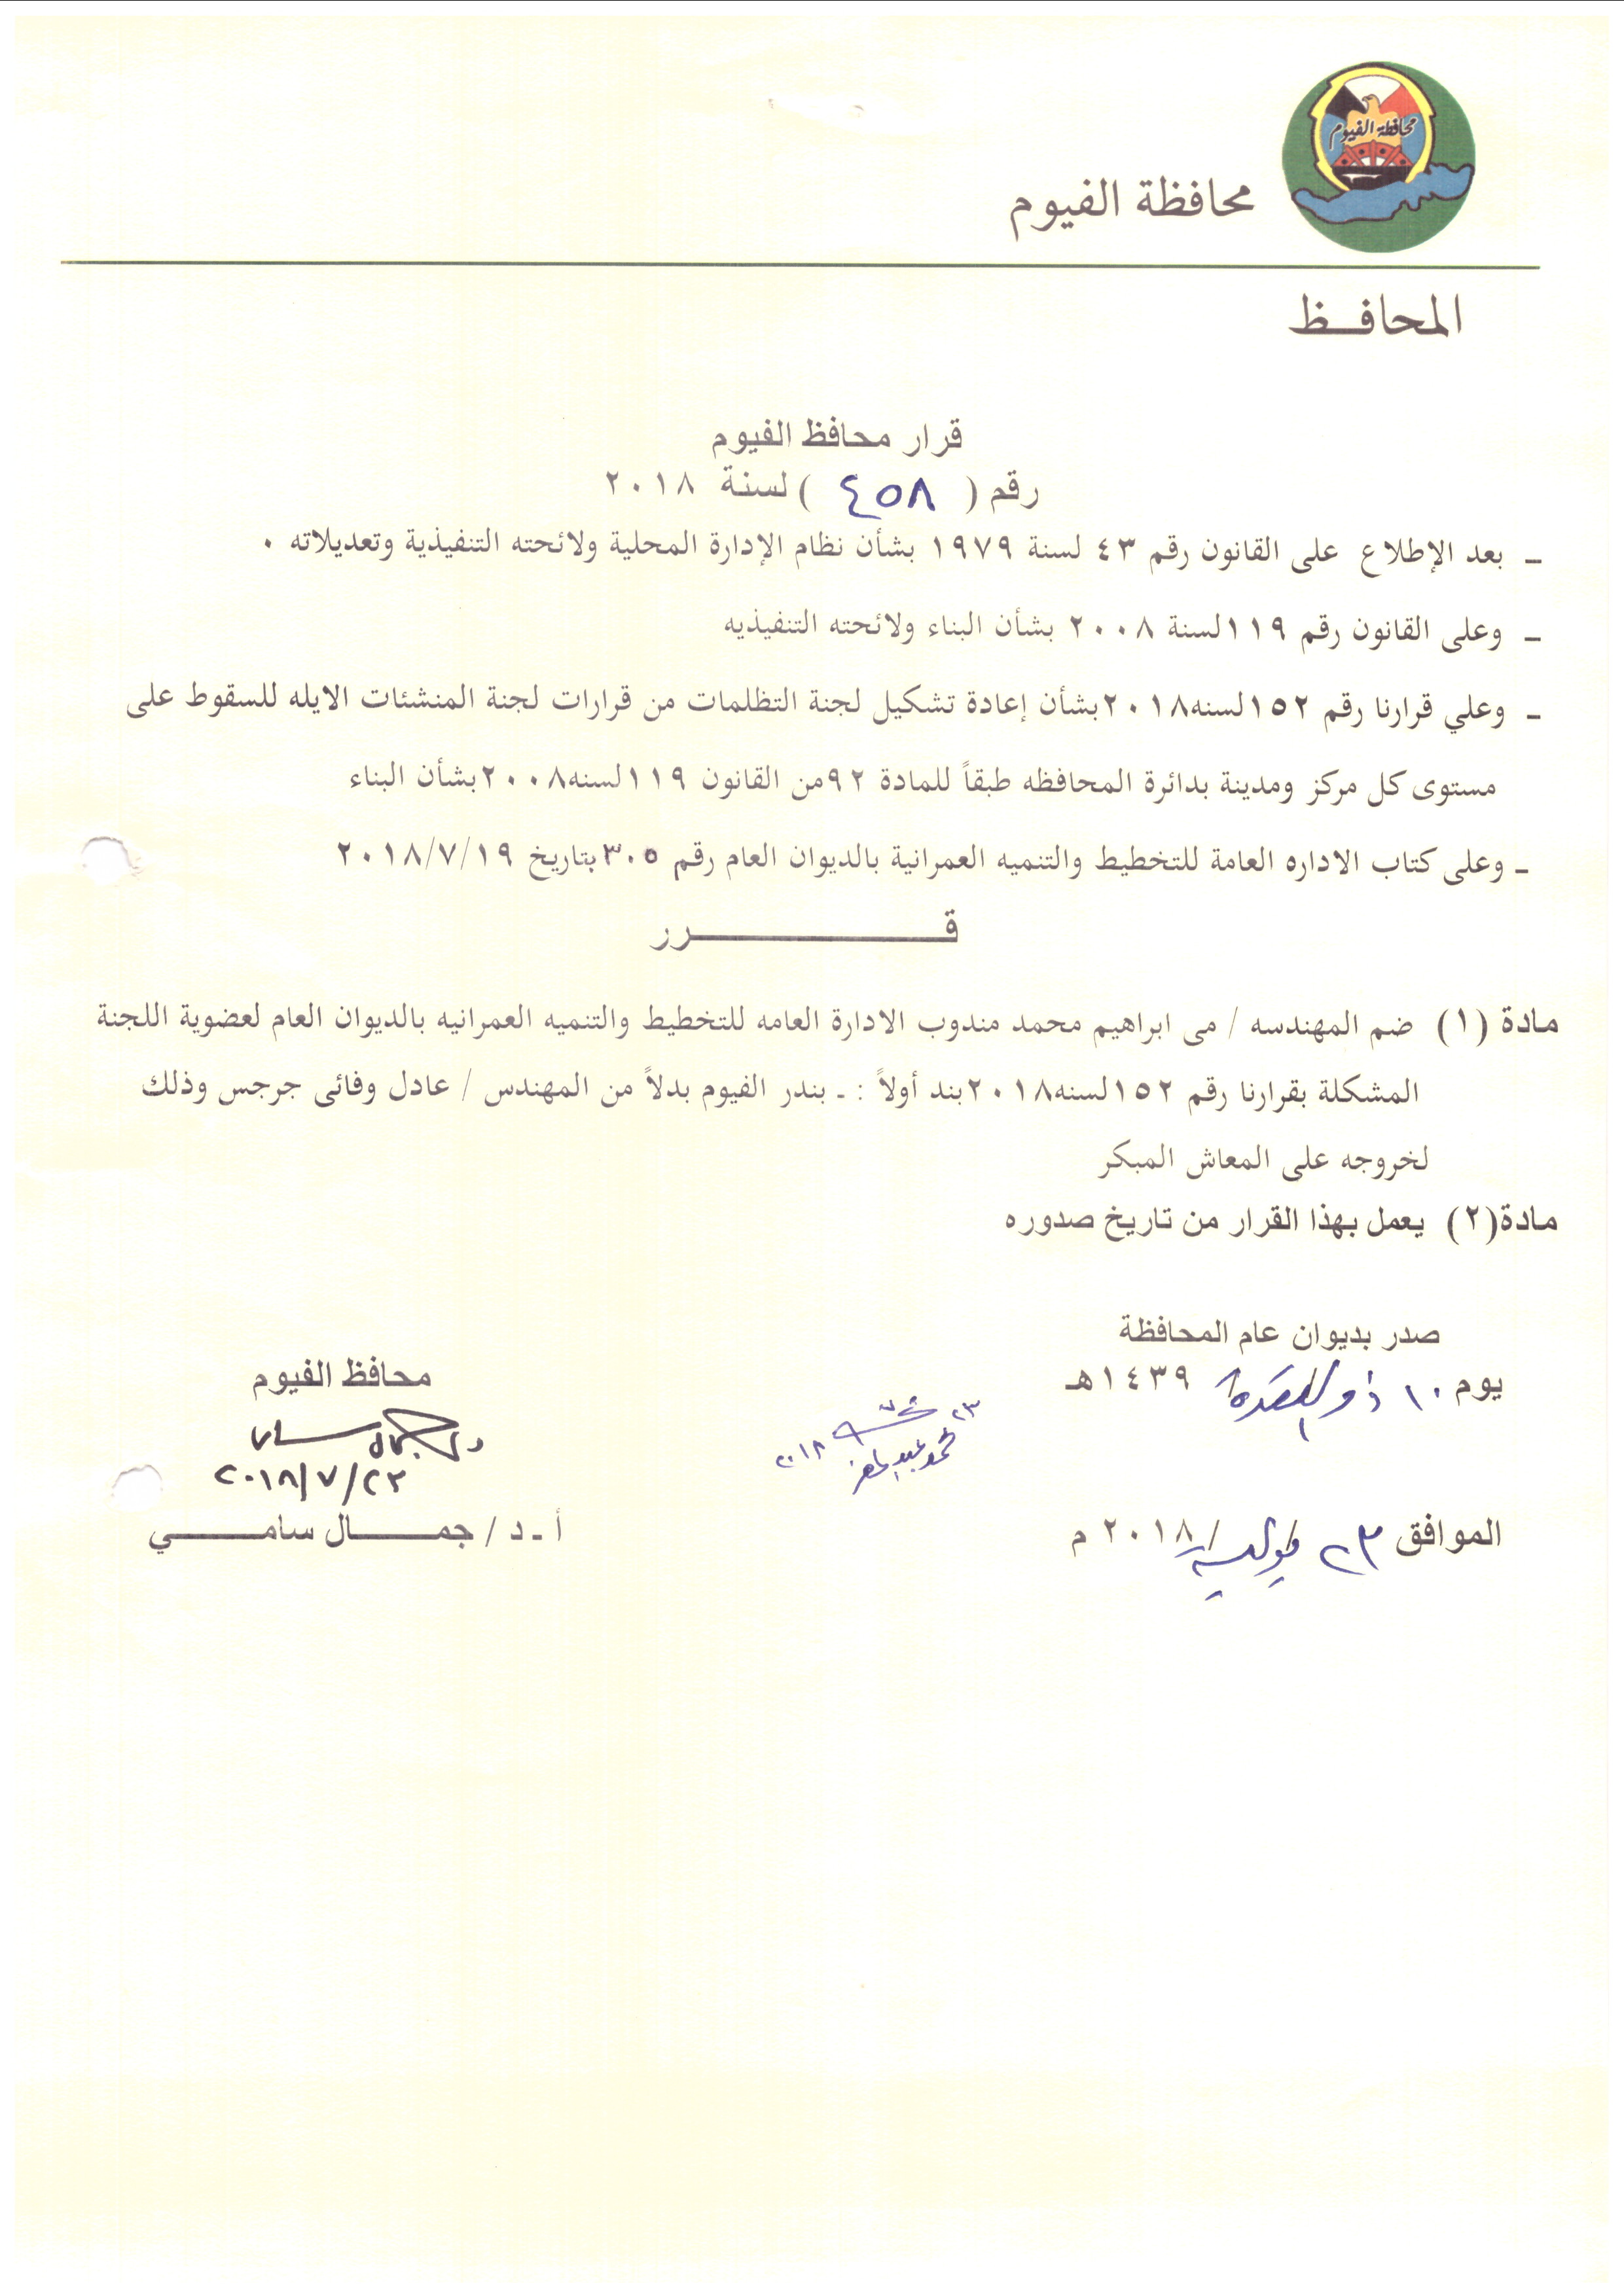 محافظة الفيوم
محافظة الفيوم
المحافـــظ
قرار محافظ الفيوم
رقم ( ٤٥٨ ) لسنة ٢٠١٨
ـ بعد الإطلاع على القانون رقم ٤٣ لسنة ١٩٧٩ بشأن نظام الإدارة المحلية ولائحته التنفيذية وتعديلاته ٠
ـ وعلى القانون رقم ١١٩ لسنة ٢٠٠٨ بشأن البناء ولائحته التنفيذيه
ـ وعلي قرارنا رقم ١٥٢ لسنه ٢٠١٨ بشأن إعادة تشكيل لجنة التظلمات من قرارات لجنة المنشئات الايله للسقوط على
مستوى كل مركز ومدينة بدائرة المحافظه طبقاً للمادة ٩٢ من القانون ١١٩ لسنه ٢٠٠٨ بشأن البناء
ـ وعلى كتاب الاداره العامة للتخطيط والتنميه العمرانية بالديوان العام رقم ٣٠٥ بتاريخ ٢٠١٨/٧/١٩
قـــــــــــــــرر
مادة (١) ضم المهندسه / مى ابراهيم محمد مندوب الادارة العامه للتخطيط والتنميه العمرانيه بالديوان العام لعضوية اللجنة
المشكلة بقرارنا رقم ١٥٢ لسنه ٢٠١٨ بند أولاً : ـ بندر الفيوم بدلاً من المهندس / عادل وفائى جرجس وذلك
لخروجه على المعاش المبكر
مادة(٢) يعمل بهذا القرار من تاريخ صدوره
صدر بديوان عام المحافظة
يوم ١٠ ذو القعدة ١٤٣٩هـ
الموافق ٢٣ يوليه / ٢٠١٨ م
محافظ الفيوم
٢٠١٨/٧/٢٣
أ ـ د / جمـــــــال سامـــــــــي
٢٣
٢٠١٨